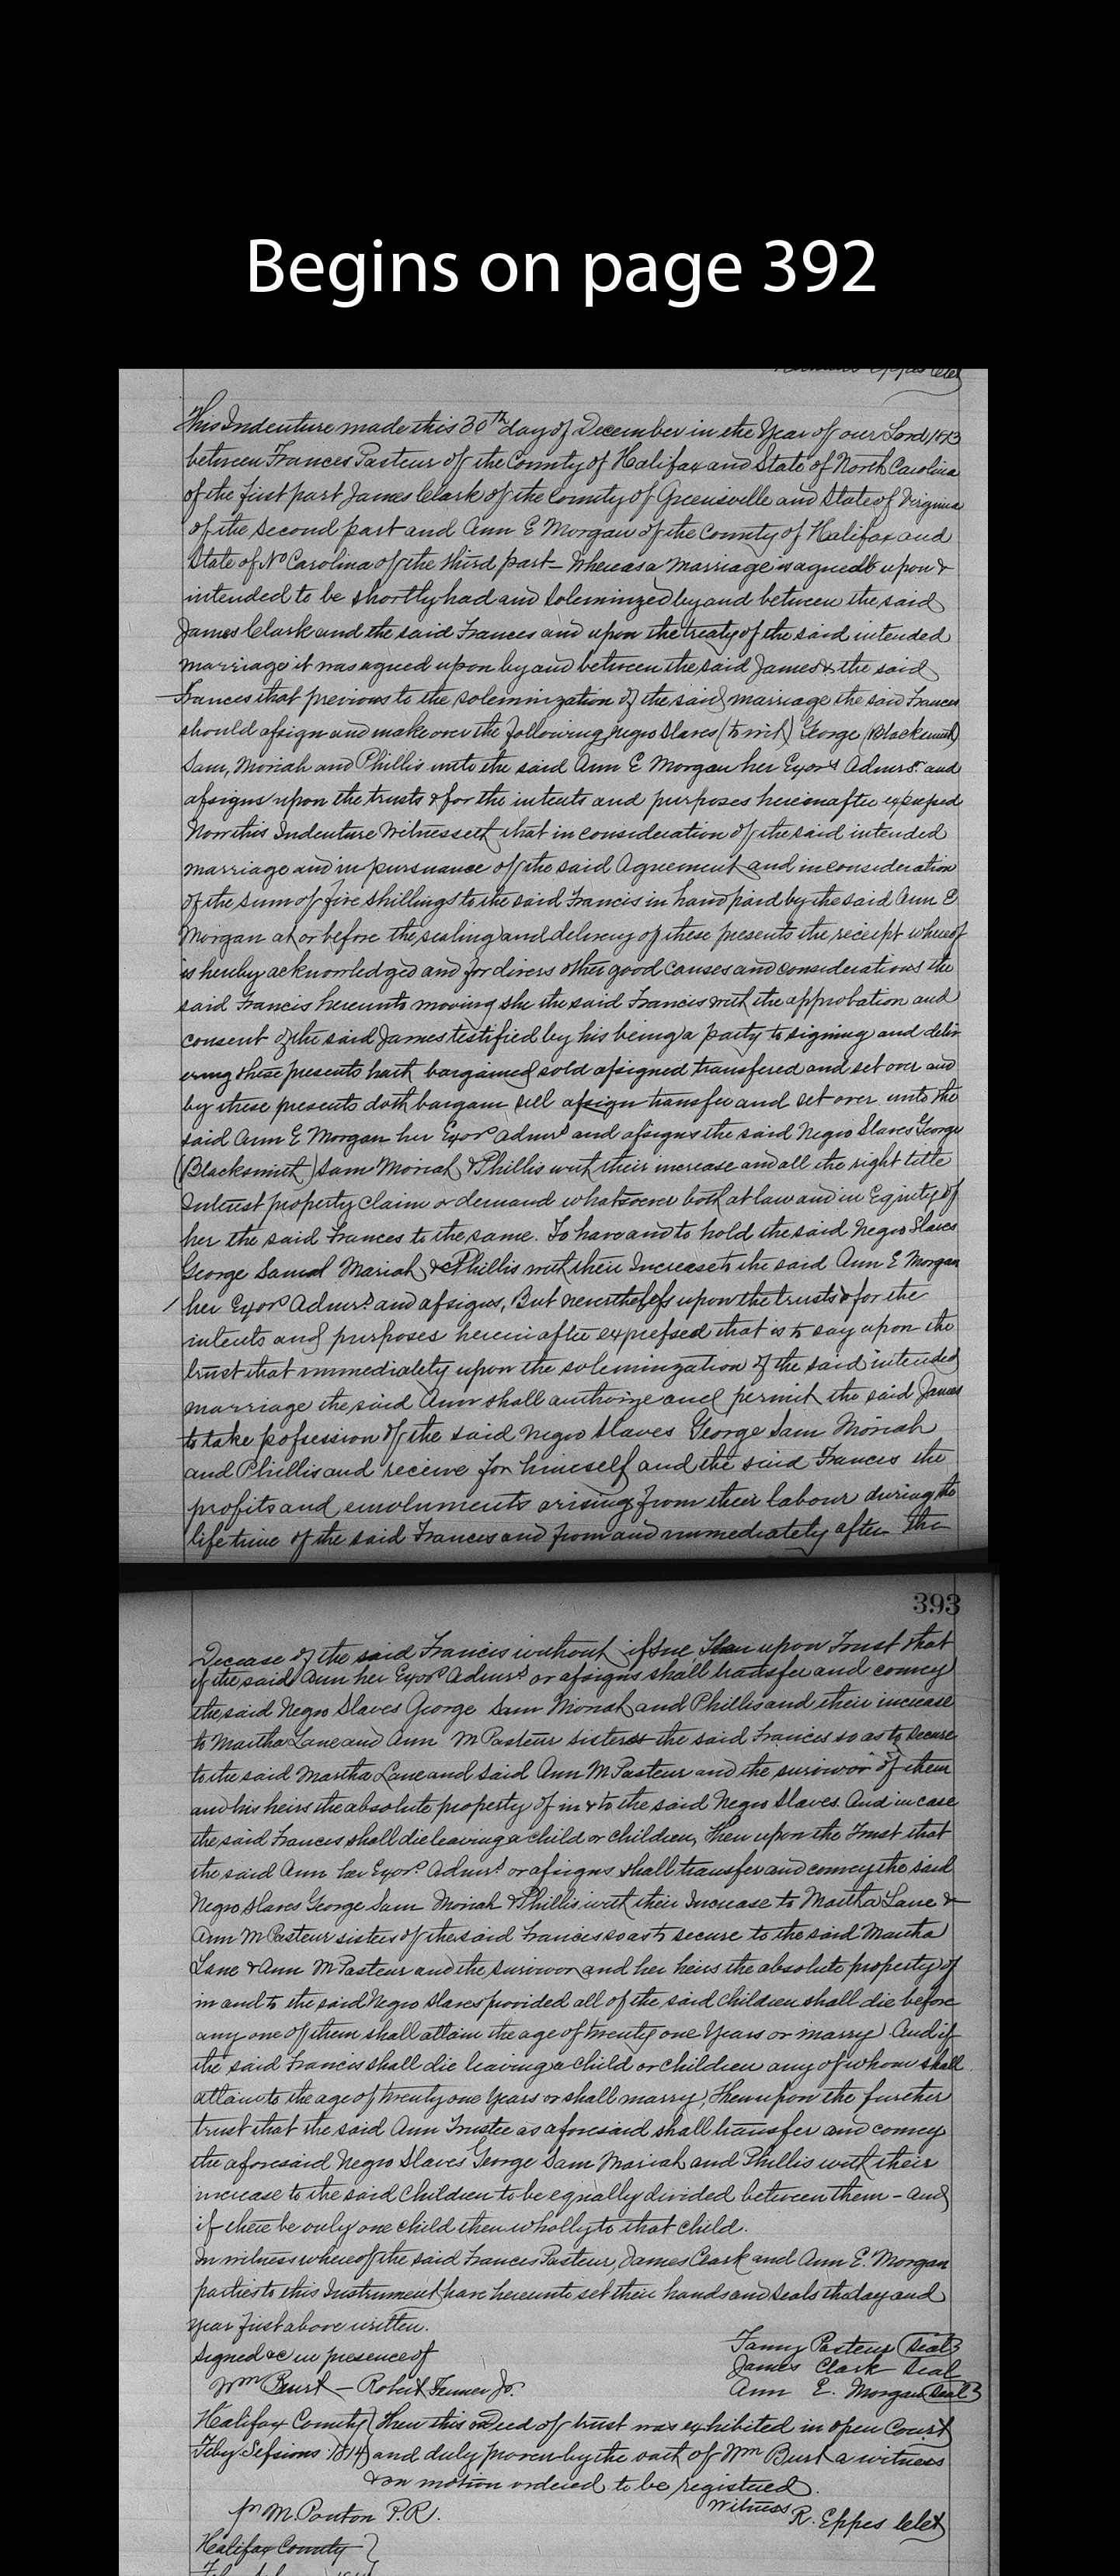 Begins on page 392
Eppes
This Indenture made this 30th day of December in the Year of our Lord 1813
between Frances Pasteur of the County of Halifax and State of North Carolina
of the first part James Clark of the County of Greensville and State of Virginia
of the second part and Ann E Morgan of the County of Halifax and
State of No Carolina of the third part – Whereas a Marriage is agreed upon &
intended to be shortly had and Soleminzed by and between the said
James Clark and the said Frances and upon the treaty of the said intended
marriage it was agreed upon by and between the said James & the said
Frances that previous to the Soleminization of the said marriage the said Frances
should assign and make over the following Negro Slaves (to wit) George (Blacksmith)
Sam, Moriah and Phillis unto the said Ann E Morgan her Exors Admrs. and
assigns upon the trusts & for the intents and purposes hereinafter expressed
Now this Indenture Witnesseth that in consideration of the said intended
marriage and in pursuance of the said Agreement and in consideration
of the sum of five shillings to the said Francis in hand paid by the said Ann E
Morgan at or before the sealing and delivery of these presents the receipt whereof
is hereby acknowledged and for divers other good causes and considerations the
said Francis hereunto moving she the said Francis with the approbation and
consent of the said James testified by his being a party to signing and deliv
ering these presents hath bargained sold assigned transfered and set over and
by these presents doth bargain sell assign transfer and set over unto the
said Ann E Morgan her Exors Admrs and assigns the said Negro Slaves George
(Blacksmith) Sam Moriah & Phillis with their increase and all the right title
Interest property claim or demand whatsoever both at law and in Equity of
her the said Frances to the same. To have and to hold the said Negro Slaves
George Samuel Mariah & Phillis with their Increase to the said Ann E Morgan
her Exors Admrs and assigns, But nevertheless upon the trusts & for the
intents and purposes herein after expressed that is to say upon the
trust that immediately upon the soleminization of the said intended
marriage the said Ann shall authorize and permit the said James
to take possession of the said Negro Slaves George Sam Moriah
and Phillis and receive for himself and the said Frances the
profits and emoluments arising from their labour during the
life time of the said Frances and from and immediately after the
393
Decease of the said Francis without issue, Then upon Trust that
if the said Ann her Exors Admrs or assigns shall transfer and convey
the said Negro Slaves George Sam Moriah and Phillis and their increase
to Martha Lane and Ann M Pasteur sisters the said Frances so as to Secure
to the said Martha Lane and said Ann M Pasteur and the survivor of them
and his heirs the absolute property of in & to the said Negro Slaves. And in case
the said Frances shall die leaving a child or children, Then upon the Trust that
the said Ann her Exors Admrs or assigns shall transfer and convey the said
Negro Slaves George Sam Moriah & Phillis with their Increase to Martha Lane &
Ann M Pasteur sisters of the said Frances so as to secure to the said Martha
Lane & Ann M Pasteur and the survivor and her heirs the absolute property of
in and to the said Negro Slaves provided all of the said Children shall die before
any one of them shall attain the age of twenty one Years or marry And if
the said Francis shall die leaving a Child or Children any of whom shall
attain to the age of twenty one Years or shall marry, Then upon the further
trust that the said Ann Trustee as aforesaid shall transfer and convey
the aforesaid Negro Slaves George Sam Mariah and Phillis with their
increase to the said Children to be equally divided between them – And
if there be only one child then wholly to that child.
In witness whereof the said Frances Pasteur, James Clark and Ann E. Morgan
parties to this Instrument have hereunto set their hands and seals the day and
year first above written.
Signed &c in presence of
Fanny Pasteur (Seal)
James Clark Seal
Wm Burt – Robert Fenner Jr.
Ann E. Morgan (Seal)
Halifax County } Then this Deed of trust was exhibited in open Court
Feby Sessions 1814 } and duly proven by the oath of Wm Burt a witness
& on motion ordered to be registered.
Witness R. Eppes
pr M. Ponton P.R.
Halifax County }